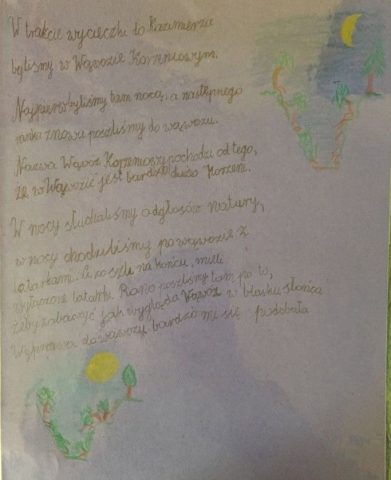 W trakcie wycieczki do Kazimierza
byliśmy w Wąwozie Korzeniowym.
Najpierw byliśmy tam nocą, a następnego
ranka znowu poszliśmy do wąwozu.
Nazwa Wąwóz Korzeniowy pochodzi od tego,
że w Wąwozie jest bardzo dużo korzeni.
W nocy słuchaliśmy odgłosów natury,
w nocy chodziliśmy po wąwozie z
latarkami. Ci, co szli na końcu, mieli
wyłączone latarki. Rano poszliśmy tam po to,
żeby zobaczyć jak wygląda Wąwóz w blasku słońca
Wyprawa do wąwozu bardzo mi się podobała